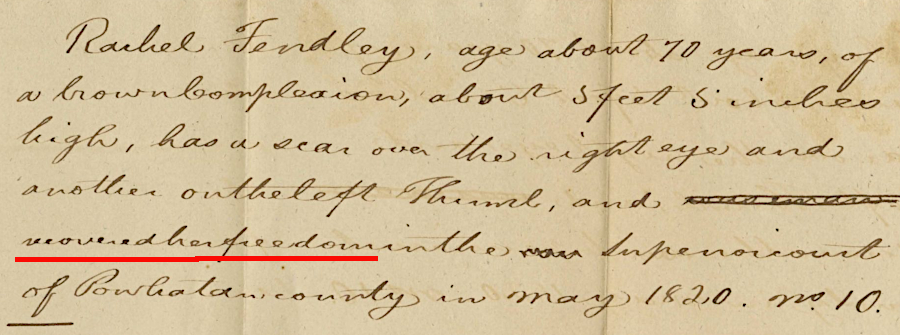 Rachel Fendley, age about 70 years, of
a brown Complexion, about 5 feet 5 inches
high, has a scar over the right eye and
another on the left Thumb, and was eman-
recovered her freedom in the Superior court
of Powhatan county in may 1820. No. 10.